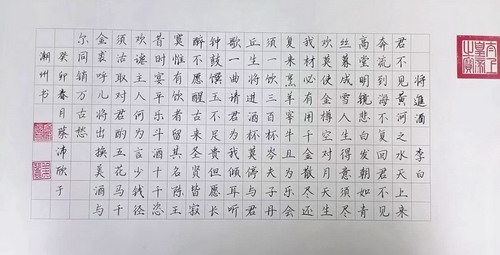 将進酒 李白
君不見黄河之水天上来
奔流到海不復回君不見
高堂明镜悲白发朝如青
丝暮成雪人生得意须尽
欢莫使金樽空对月天生
我材必有用千金散尽还
复来烹羊宰牛且为乐会
须一饮三百杯岑夫子丹
丘生将进酒杯莫停与君
歌一曲请君为我倾耳听
钟鼓馔玉不足贵但愿长
醉不愿醒古来圣贤皆寂
寞惟有饮者留其名陈王
昔时宴平乐斗酒十千恣
欢谑主人何为言少钱径
须沽取对君酌五花马千
金裘呼儿将出换美酒与
尔同销万古愁
癸卯春月蔡沛欣于
潮州书
太上皇帝之寶